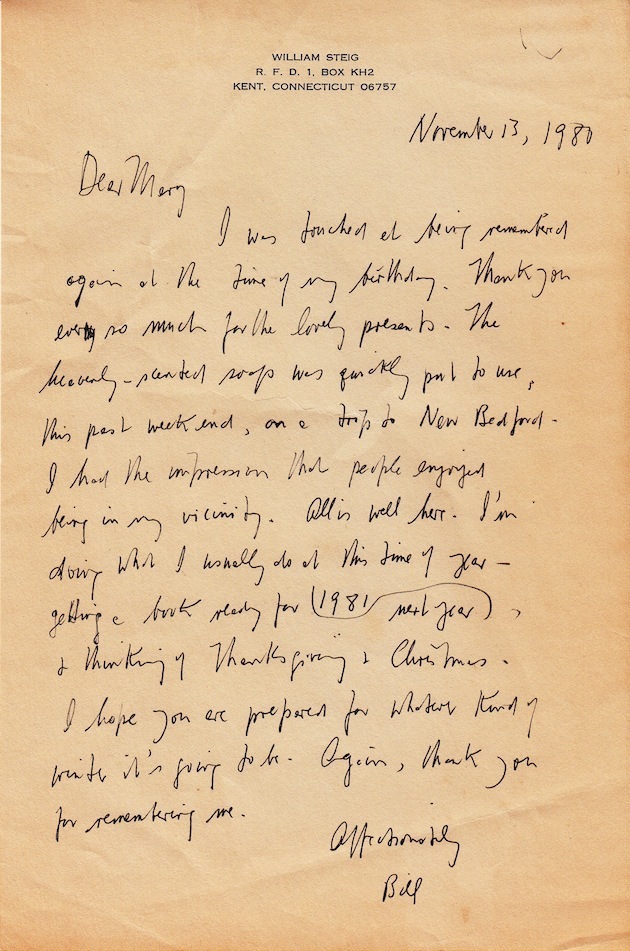 WILLIAM STEIG
R. F. D. 1, BOX KH2
KENT, CONNECTICUT 06757
November 13, 1980
Dear Mary
I was touched at being remembered
again at the time of my birthday. Thank you
ever so much for the lovely presents. The
heavenly-scented soap was quickly put to use,
this past weekend, on a trip to New Bedford.
I had the impression that people enjoyed
being in my vicinity. All is well here. I'm
doing what I usually do at this time of year -
getting a book ready for (1981 next year),
& thinking of Thanksgiving & Christmas.
I hope you are prepared for whatever kind of
winter it's going to be. Again, thank you
for remembering me.
Affectionately
Bill